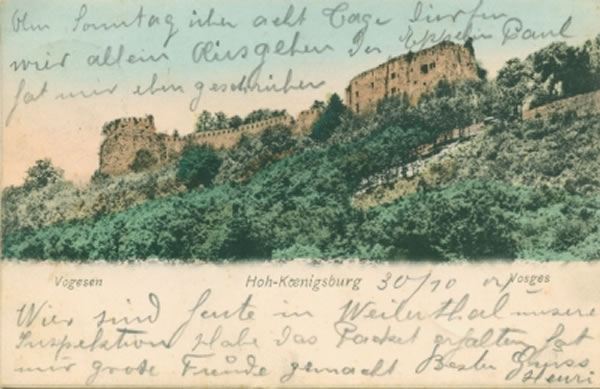 Am Sonntag über acht Tage dürfen
wir allein Ausgehen Der Eppstein Paul
hat mir eben geschrieben
Vogesen Hoh-Kœnigsburg 30/10 Vosges
Wir sind heute in Weilerthal unsere
Inspektion Habe das Packet erhalten hat
mir grote Freude gemacht Besten Gruss
Henri